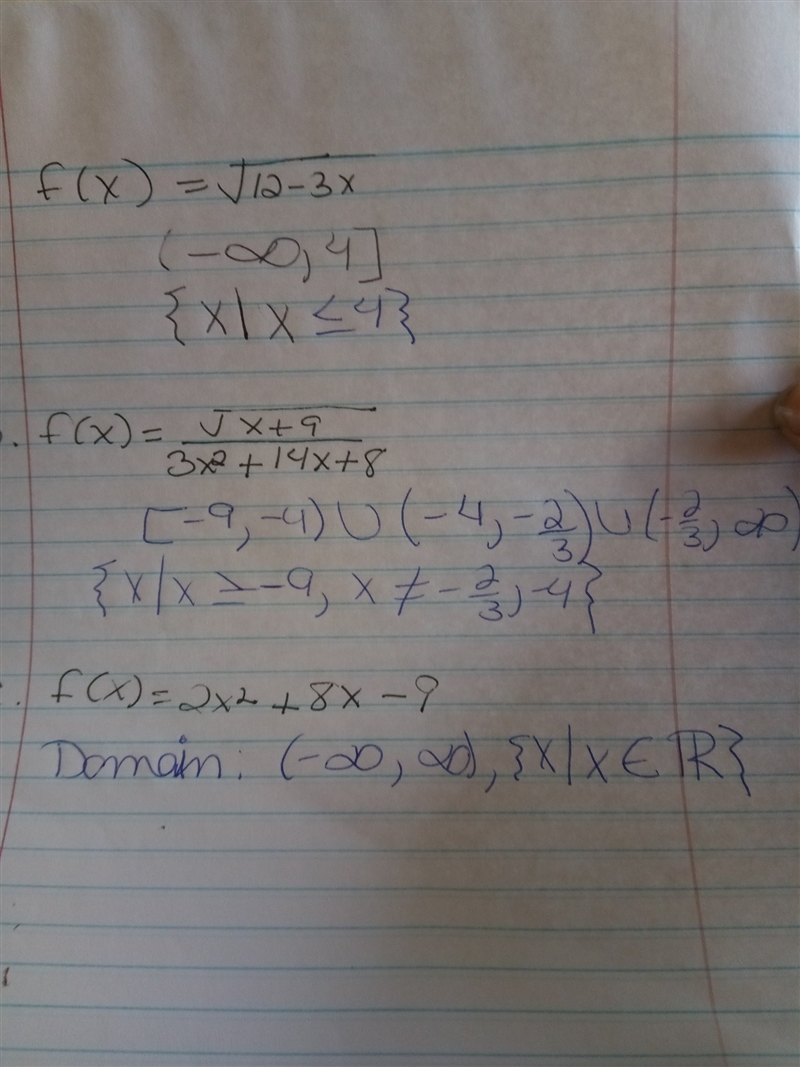 f(x) = √12-3x
(-∞, 4]
{x|x ≤4}
. f(x) = √x+9 / 3x²+14x+8
[-9, -4) ∪ (-4, -2/3) ∪ (-2/3, ∞)
{x|x ≥ -9, x ≠ -2/3, -4}
. f(x) = 2x² + 8x - 9
Domain: (-∞, ∞), {x|x ∈ ℝ}